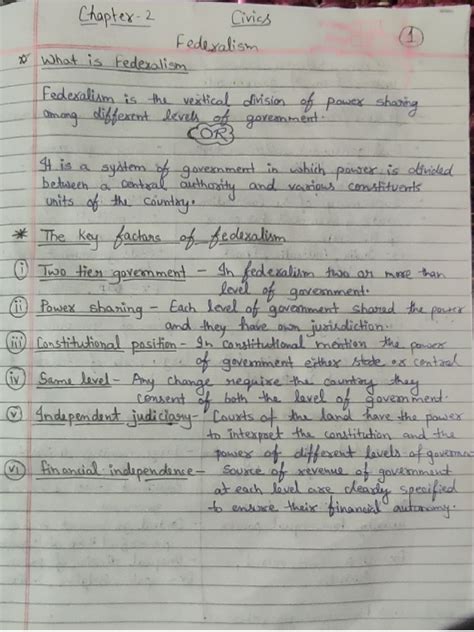 Chapter-2 Civics
1
Federalism
What is Federalism
Federalism is the vertical division of power sharing
among different levels of government.
OR
It is a system of government in which power is divided
between a central authority and various constituents
units of the country.
* The Key factors of federalism
(i) Two tier government - In federalism two or more than
level of government.
(ii) Power sharing - Each level of government shared the power
and they have own jurisdiction.
(iii) Constitutional position - In constitutional mention the power
of government either state or central
(iv) Same level - Any change require the country they
consent of both the level of government.
(v) Independent judiciary - Courts of the land have the power
to interpret the constitution and the
power of different levels of governm
(vi) Financial independence - source of revenue of government
at each level are clearly specified
to ensure their financial autonomy.